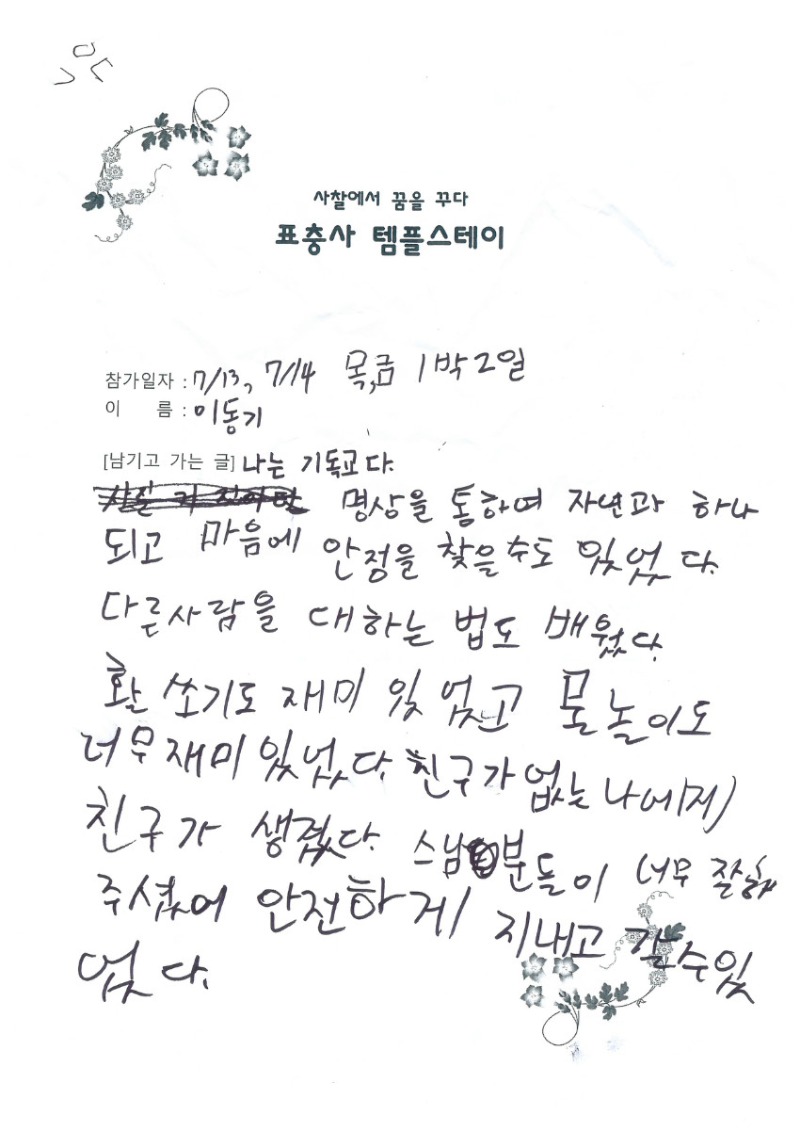 사찰에서 꿈을 꾸다
표충사 템플스테이
참가일자 : 7/13, 7/14 목,금 1박 2일
이 름 : 이동기
[남기고 가는 글] 나는 기독교다.
명상을 통하여 자년과 하나
되고 마음에 안정을 찾을수도 있었다.
다른사람을 대하는 법도 배웠다.
활 쏘기도 재미 있었고 물놀이도
너무재미있었다. 친구가 없는 나에게
친구가 생겼다. 스님분들이 너무 잘해
주셨어 안전하게 지내고 갈수있
었다.